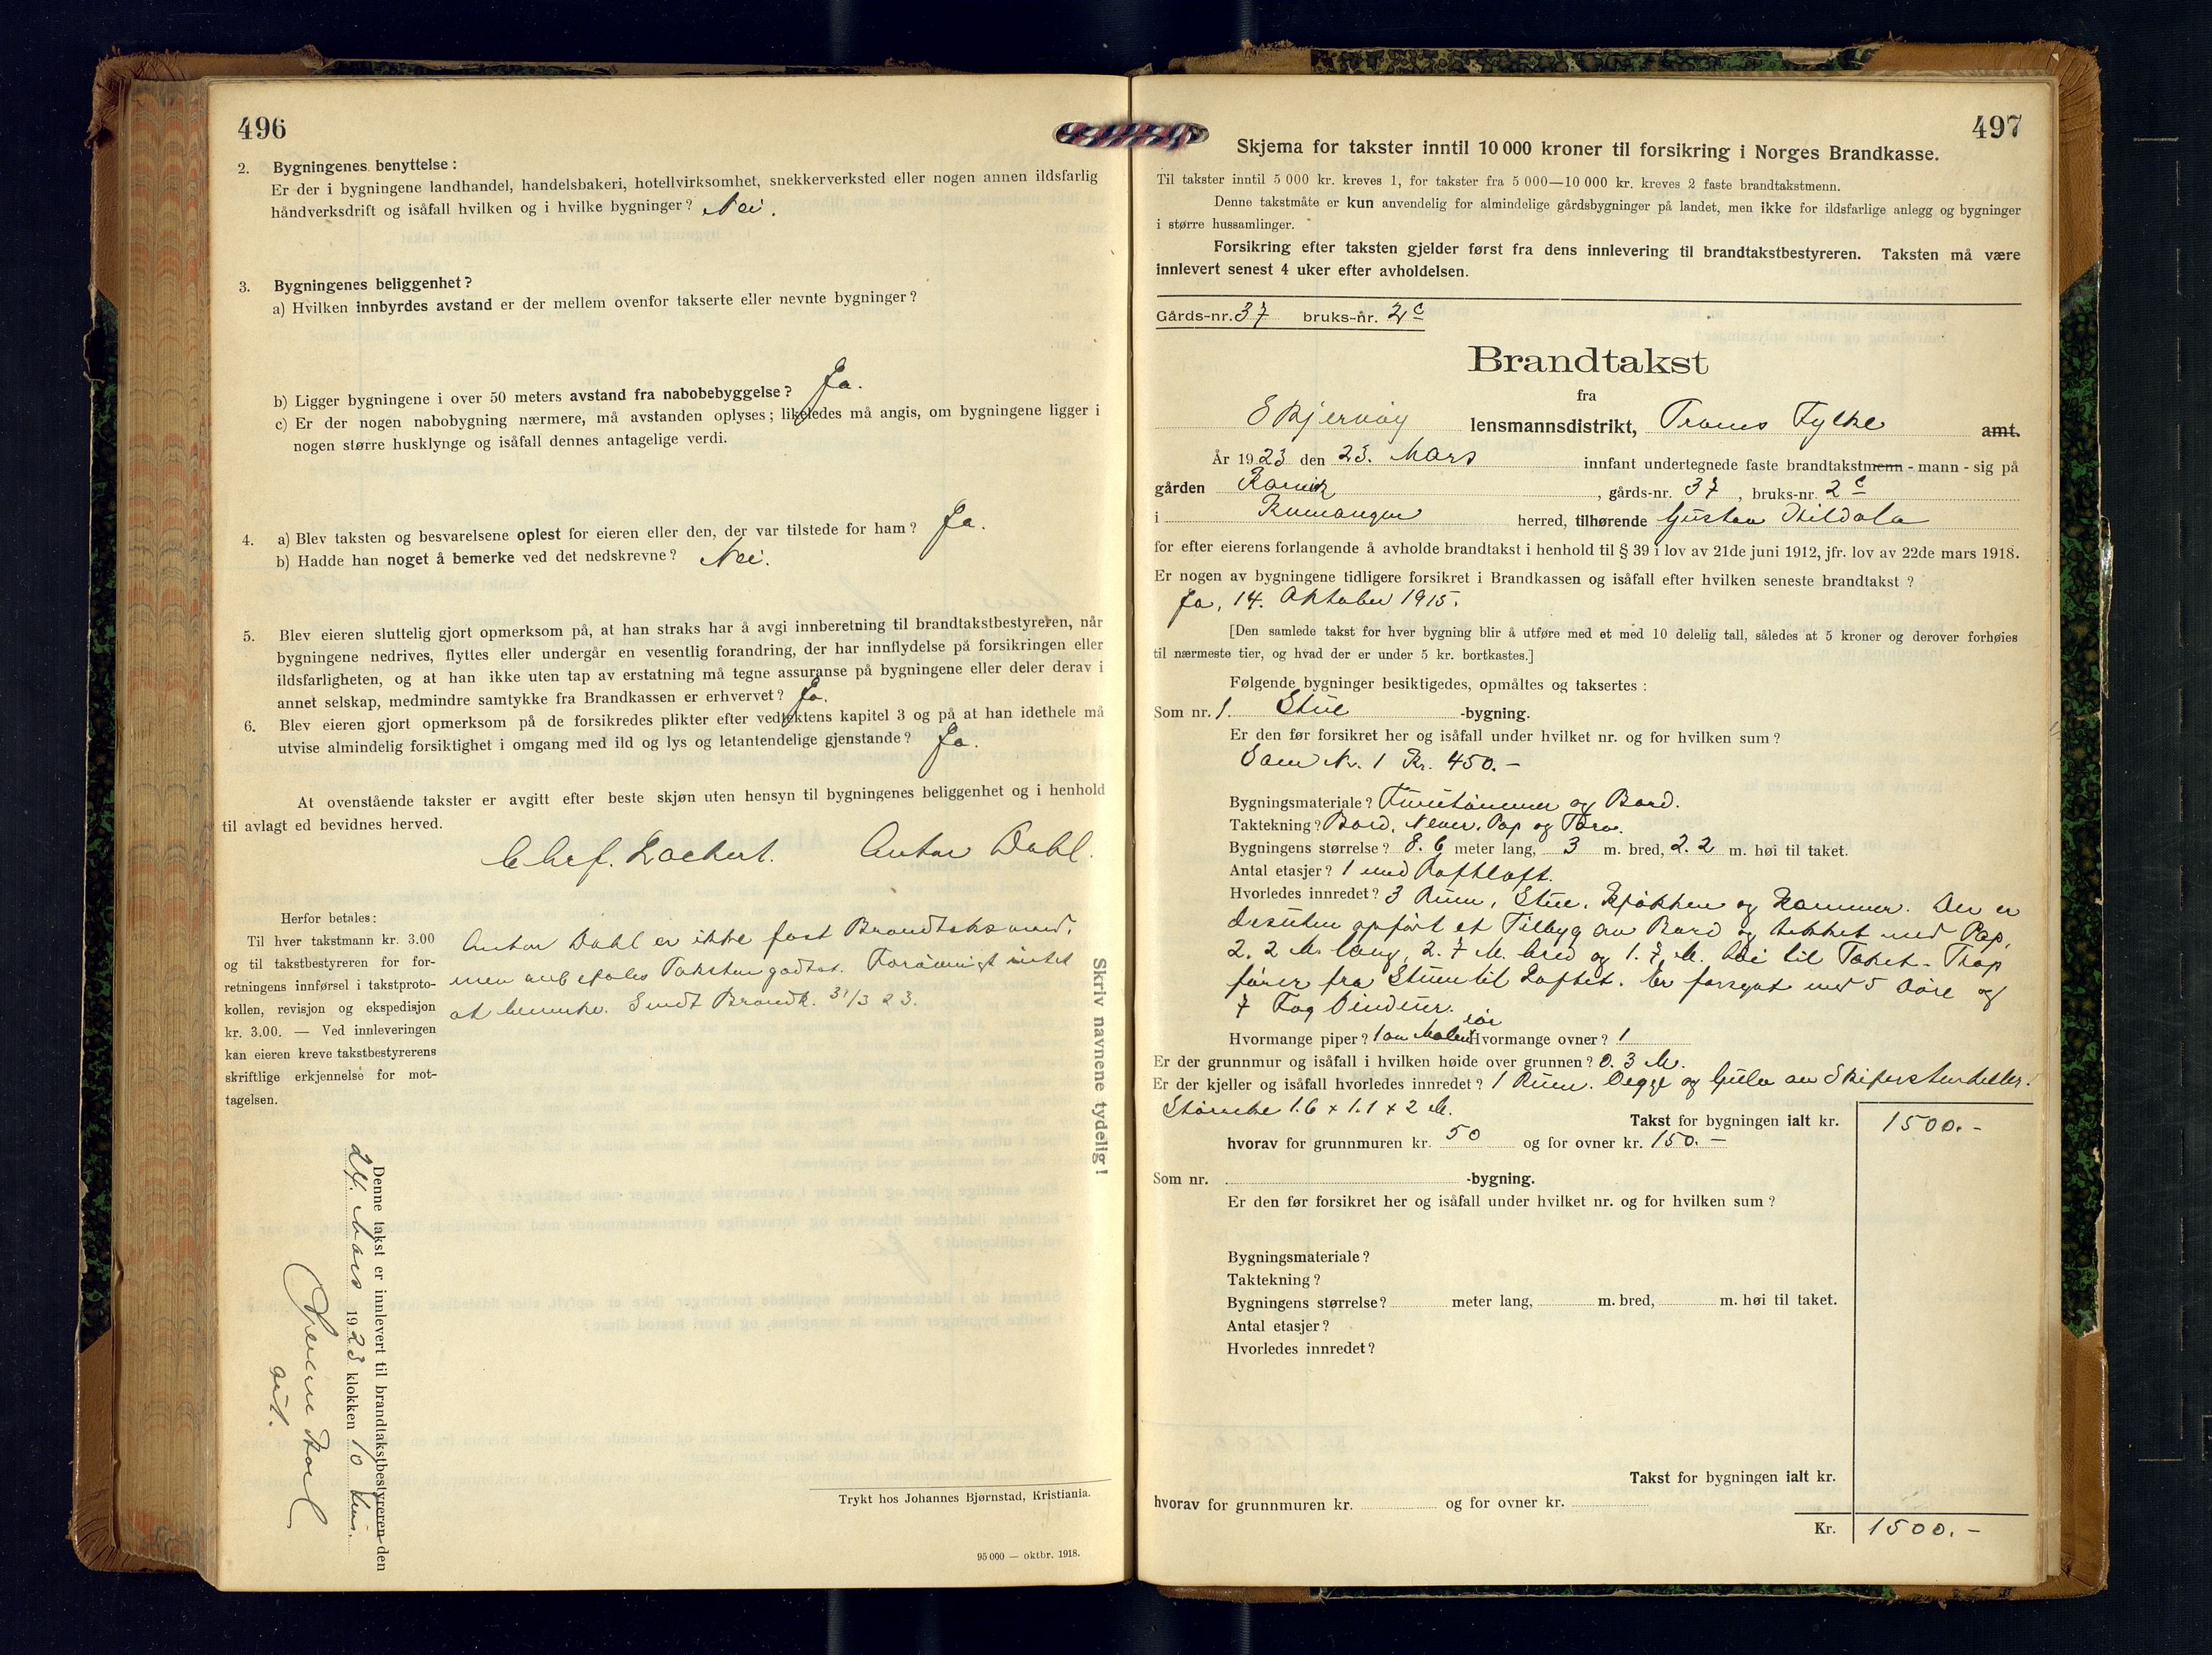 496
2. Bygningenes benyttelse:
Er der i bygningene landhandel, handelsbakeri, hotellvirksomhet, snekkerverksted eller nogen annen ildsfarlig
håndverksdrift og isåfall hvilken og i hvilke bygninger? Nei.
3. Bygningenes beliggenhet?
a) Hvilken innbyrdes avstand er der mellem ovenfor takserte eller nevnte bygninger?
b) Ligger bygningene i over 50 meters avstand fra nabobebyggelse? Ja.
c) Er der nogen nabobygning nærmere, må avstanden oplyses; likeledes må angis, om bygningene ligger i
nogen større husklynge og isåfall dennes antagelige verdi.
4. a) Blev taksten og besvarelsene oplest for eieren eller den, der var tilstede for ham? Ja.
b) Hadde han noget å bemerke ved det nedskrevne? Nei.
5. Blev eieren sluttelig gjort opmerksom på, at han straks har å avgi innberetning til brandtakstbestyreren, når
bygningene nedrives, flyttes eller undergår en vesentlig forandring, der har innflydelse på forsikringen eller
ildsfarligheten, og at han ikke uten tap av erstatning må tegne assuranse på bygningene eller deler derav i
annet selskap, medmindre samtykke fra Brandkassen er erhvervet? Ja.
6. Blev eieren gjort opmerksom på de forsikredes plikter efter vedtektens kapitel 3 og på at han idethele må
utvise almindelig forsiktighet i omgang med ild og lys og letantendelige gjenstande? Ja.
At ovenstående takster er avgitt efter beste skjøn uten hensyn til bygningenes beliggenhet og i henhold
til avlagt ed bevidnes herved.
Chrf. Lockert. Anton Dahl.
Herfor betales:
Til hver takstmann kr. 3.00
og til takstbestyreren for for-
retningens innførsel i takstproto-
kollen, revisjon og ekspedisjon
kr. 3.00. — Ved innleveringen
kan eieren kreve takstbestyrerens
skriftlige erkjennelse for mot-
tagelsen.
Anton Dahl er ikke fast Brandtaksmand,
men anbefales Taksten godtat. Forøvrigt intet
at bemerke. Sendt Brandk. 31/3 23.
Skriv navnene tydelig!
Denne takst er innlevert til brandtakstbestyreren den
24. Mars 1923 klokken 10 fm.
Trykt hos Johannes Bjørnstad, Kristiania.
95 000 — oktbr. 1918.
497
Skjema for takster inntil 10 000 kroner til forsikring i Norges Brandkasse.
Til takster inntil 5 000 kr. kreves 1, for takster fra 5 000—10 000 kr. kreves 2 faste brandtakstmenn.
Denne takstmåte er kun anvendelig for almindelige gårdsbygninger på landet, men ikke for ildsfarlige anlegg og bygninger
i større hussamlinger.
Forsikring efter taksten gjelder først fra dens innlevering til brandtakstbestyreren. Taksten må være
innlevert senest 4 uker efter avholdelsen.
Gårds-nr. 37 bruks-nr. 2 c
Brandtakst
fra
Skjervøy lensmannsdistrikt, Troms Fylke amt.
År 1923 den 23. Mars innfant undertegnede faste brandtakstmenn - mann - sig på
gården , gårds-nr. 37, bruks-nr. 2 c
i Kvænangen herred, tilhørende Gustav Kildala
for efter eierens forlangende å avholde brandtakst i henhold til § 39 i lov av 21de juni 1912, jfr. lov av 22de mars 1918.
Er nogen av bygningene tidligere forsikret i Brandkassen og isåfall efter hvilken seneste brandtakst?
Ja, 14. Oktober 1915.
[Den samlede takst for hver bygning blir å utføre med et med 10 delelig tall, således at 5 kroner og derover forhøies
til nærmeste tier, og hvad der er under 5 kr. bortkastes.]
Følgende bygninger besiktigedes, opmåltes og taksertes:
Som nr. 1. Stue -bygning.
Er den før forsikret her og isåfall under hvilket nr. og for hvilken sum?
Som Nr. 1 Kr. 450.-
Bygningsmateriale? Furutømmer og Bord.
Taktekning? Bord, Never, Pap og Torv.
Bygningens størrelse? 8.6 meter lang, 3 m. bred, 2.2 m. høi til taket.
Antal etasjer? 1 med Røftloft.
Hvorledes innredet? 3 Rum, Stue, Kjøkken og Kammer. Der er
desuten opført et Tilbyg av Bord og tekket med Pap,
2.2 M. lang, 2.7 M. bred og 1.7 M. høi til Taket. Trap
fører fra Stuen til Loftet. Er forsynt med 5 Døre og
7 Fag Vinduer.
Hvormange piper? 1 Hvormange ovner? 1
Er der grunnmur og isåfall i hvilken høide over grunnen? 0.3 M.
Er der kjeller og isåfall hvorledes innredet? 1 Rum. Vegge og Gulv av Skiferstenheller.
Størrelse 1.6 x 1.1 x 2 M.
Takst for bygningen ialt kr. 1500.-
hvorav for grunnmuren kr. 50 og for ovner kr. 150.-
Som nr. -bygning.
Er den før forsikret her og isåfall under hvilket nr. og for hvilken sum?
Bygningsmateriale?
Taktekning?
Bygningens størrelse? meter lang, m. bred, m. høi til taket.
Antal etasjer?
Hvorledes innredet?
Takst for bygningen ialt kr.
hvorav for grunnmuren kr. og for ovner kr.
Kr. 1500.-